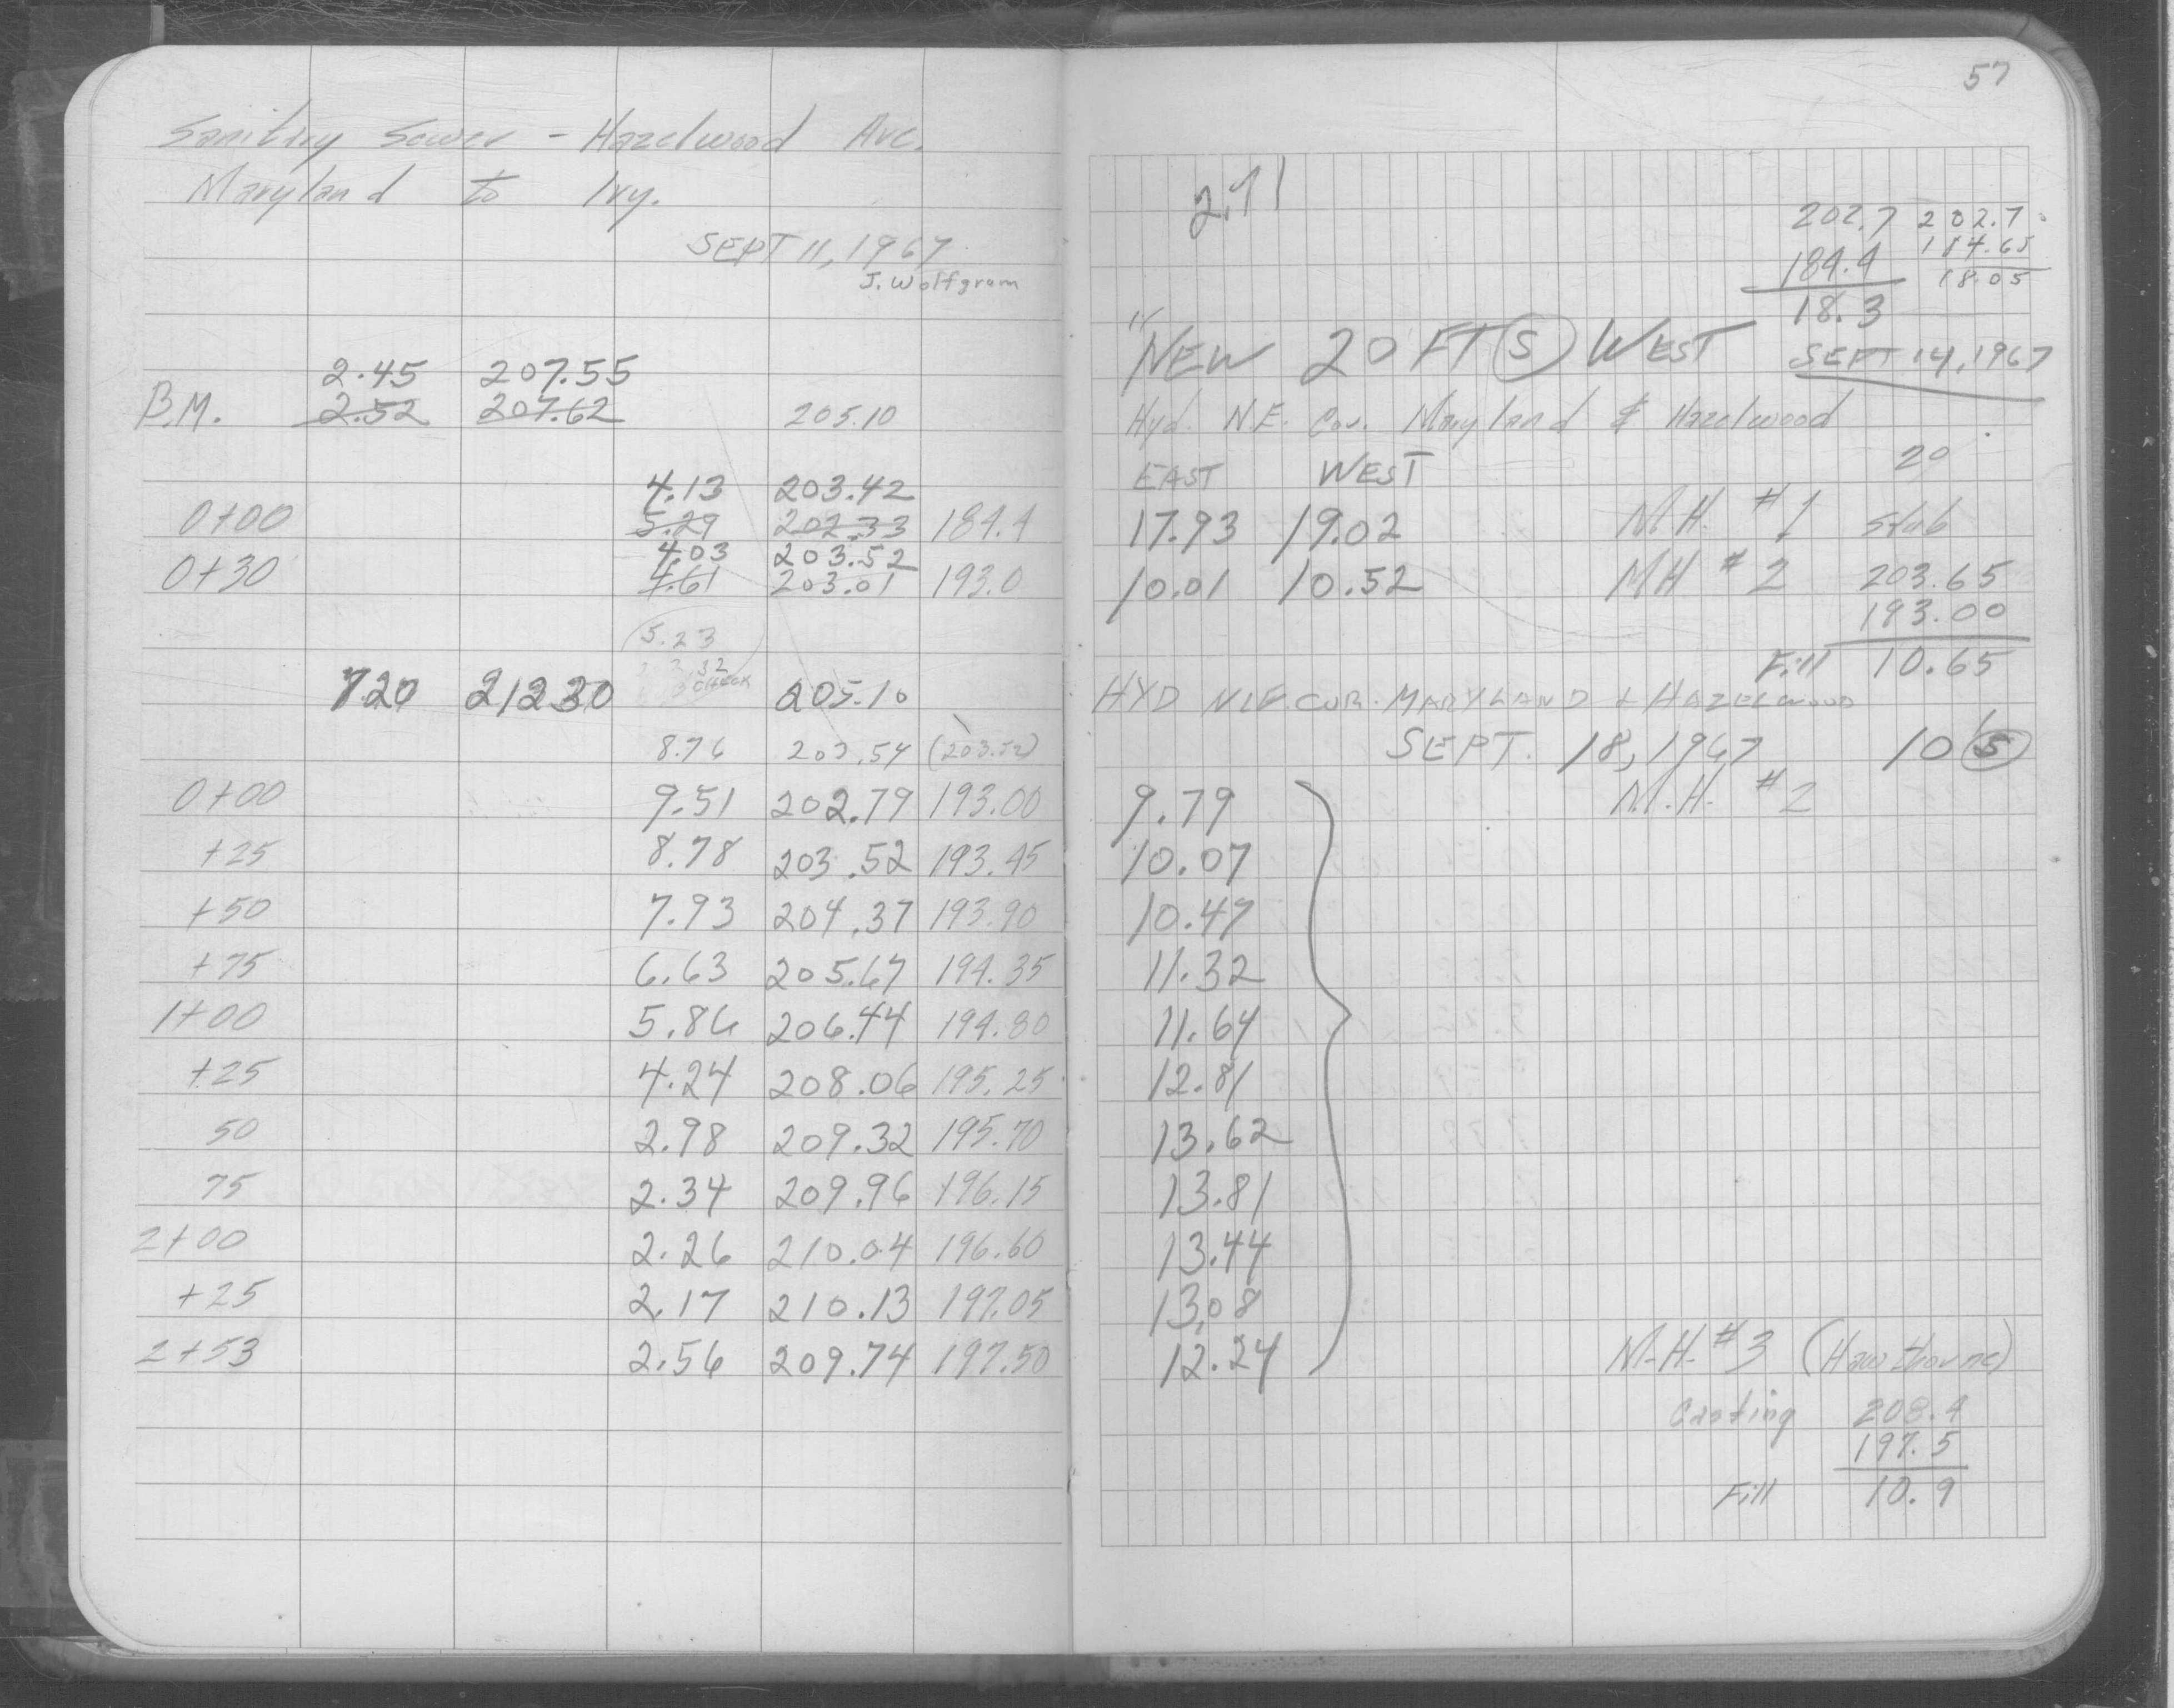 Sanitary Sewer - Hazelwood Ave.
Maryland to Ivy.
SEPT 11, 1967
J. Wolfgram
2.45 207.55
B.M. 2.52 207.62 205.10
4.13 203.42
0+00 5.29 202.33 184.4
4.03 203.52
0+30 4.61 203.01 193.0
5.23
check
7.20 212.30 205.10
8.76 203.54 (203.52)
0+00 9.51 202.79 193.00
+25 8.78 203.52 193.45
+50 7.93 204.37 193.90
+75 6.63 205.67 194.35
1+00 5.86 206.44 194.80
+25 4.24 208.06 195.25
50 2.98 209.32 195.70
75 2.34 209.96 196.15
2+00 2.26 210.04 196.60
+25 2.17 210.13 197.05
2+53 2.56 209.74 197.50
57
2.71
202.7 202.7
184.4 184.65
18.3 18.05
NEW 20 FT S WEST SEPT 14, 1967
Hyd. N.E. Cor. Maryland & Hazelwood
EAST WEST 20
17.93 19.02 M.H. #1 stub
10.01 10.52 MH #2 203.65
193.00
Fill 10.65
HYD N.E. COR. MARYLAND & HAZELWOOD
SEPT. 18, 1967 10' S
9.79 M.H. #2
10.07
10.47
11.32
11.64
12.81
13.62
13.81
13.44
13.08
12.24 M.H. #3 (Hawthorne)
Casting 208.4
197.5
Fill 10.9